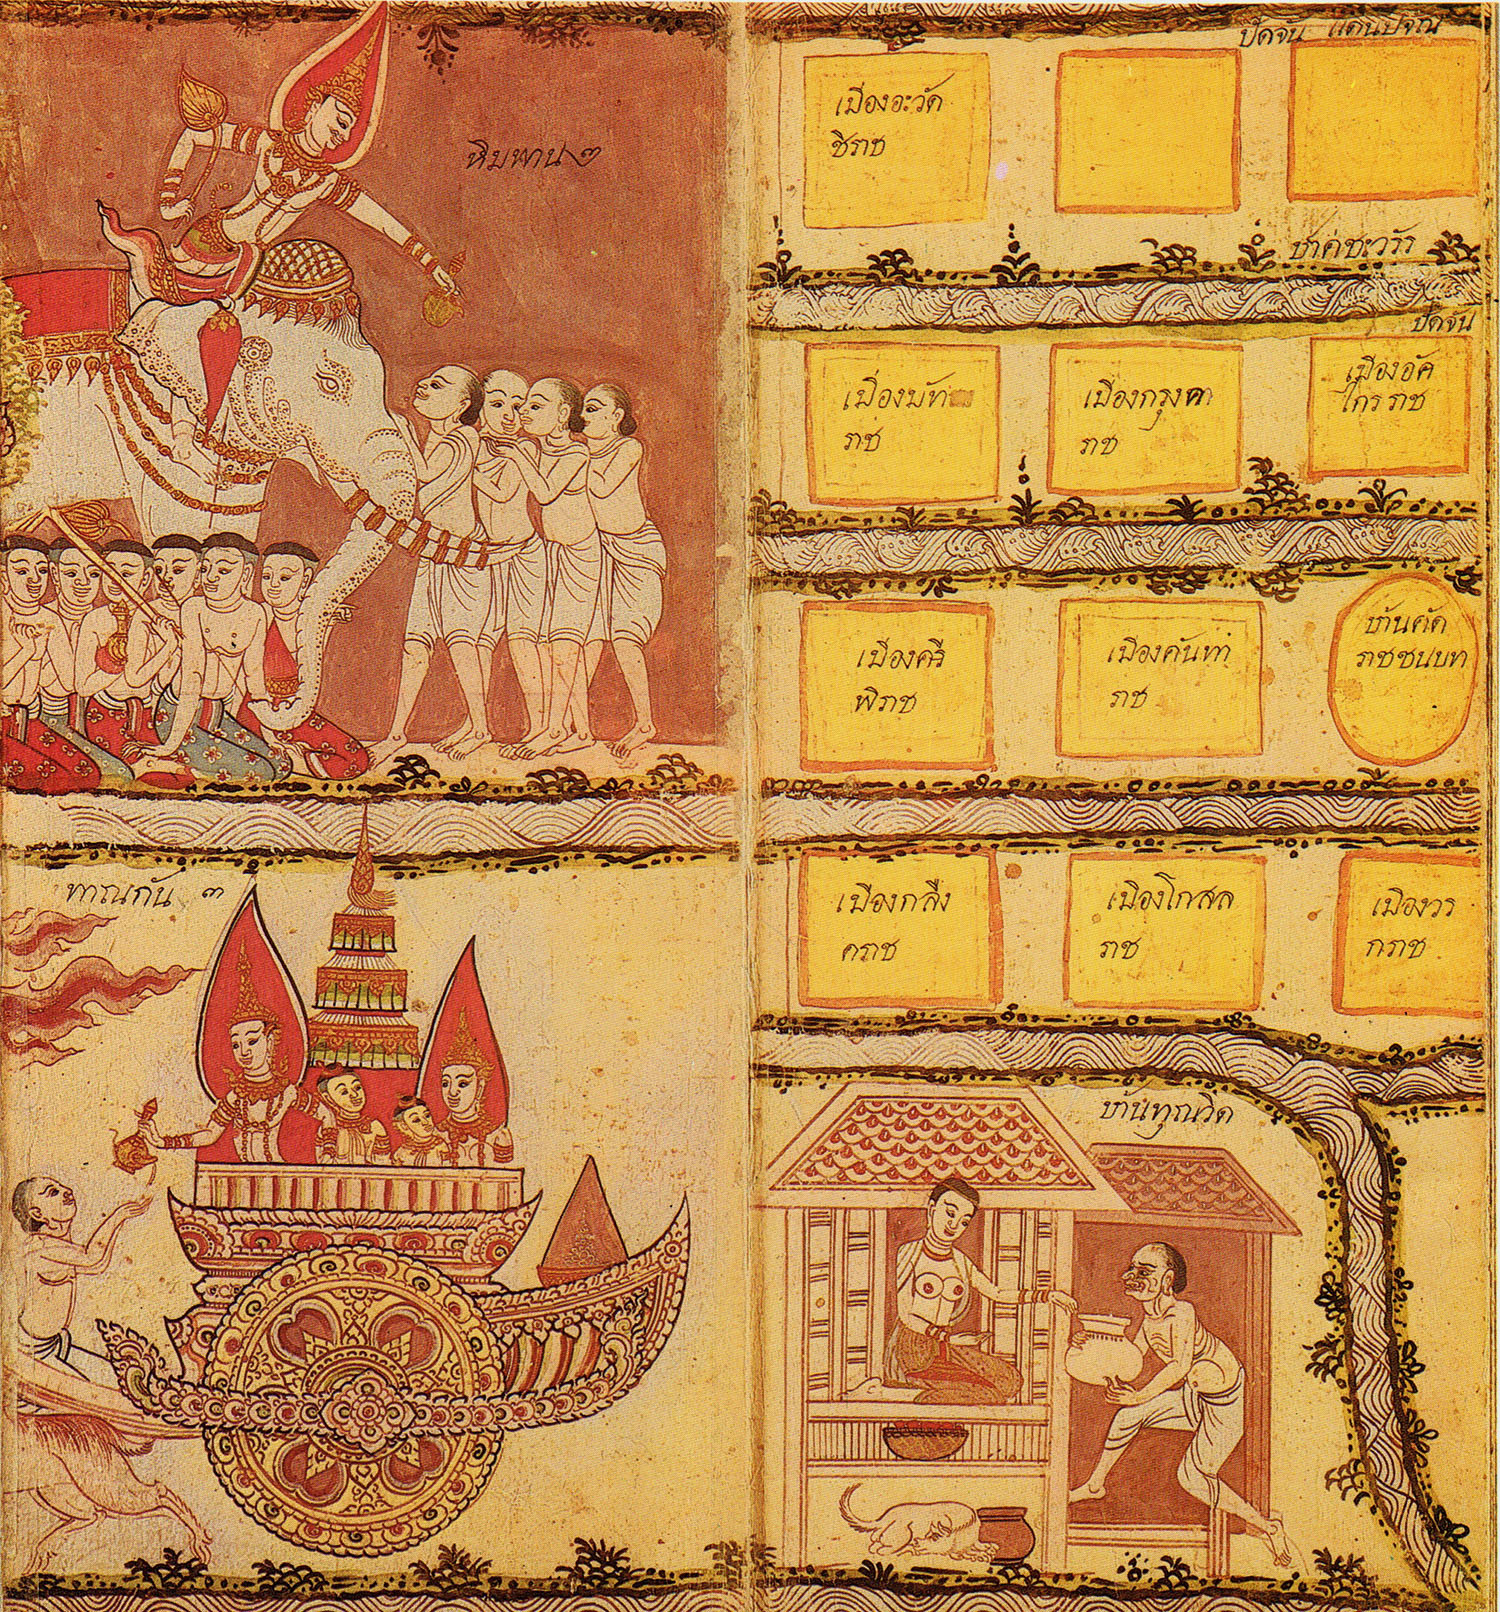 หิมพาน ๓
ทาณกัน ๓
ปัดจัน แดนปัจัน
เมืองอะวัด
ชิราช
ปัดจัน
เมืองมัท
ราช
เมืองกุรุ
ราช
เมืองอัค
ไกรราช
เมืองศรี
พิราช
เมืองคันทา
ราช
บ้านคัด
ราชชนบท
เมืองกลึง
คราช
เมืองโกสล
ราช
เมืองวร
กราช
บ้านทุณวิต